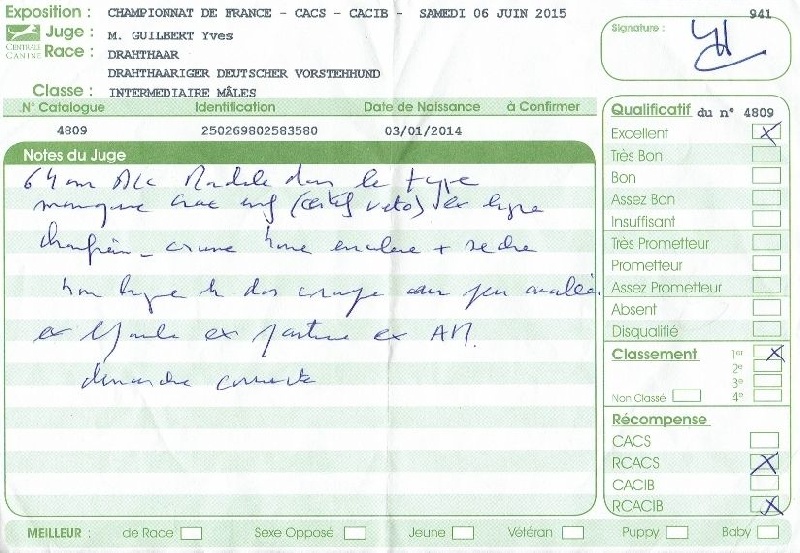 Exposition : CHAMPIONNAT DE FRANCE - CACS - CACIB - SAMEDI 06 JUIN 2015 941
Juge : M. GUILBERT Yves
CENTRALE CANINE
Race : DRAHTHAAR
DRAHTHAARIGER DEUTSCHER VORSTEHHUND
Classe : INTERMEDIAIRE MÂLES
Signature :
N° Catalogue Identification Date de Naissance à Confirmer
4809 250269802583580 03/01/2014
Notes du Juge
64 cm dans le type
manque (certif veto) ex ligne
chanfrein - crane bonne encolure + seche
bon ligne de dos croupe un peu avalée
ex ex ex
demarche correcte
Qualificatif du n° 4809
Excellent X
Très Bon
Bon
Assez Bon
Insuffisant
Très Prometteur
Prometteur
Assez Prometteur
Absent
Disqualifié
Classement 1er X
2e
3e
Non Classé 4e
Récompense
CACS
RCACS X
CACIB
RCACIB X
MEILLEUR : de Race Sexe Opposé Jeune Vétéran Puppy Baby